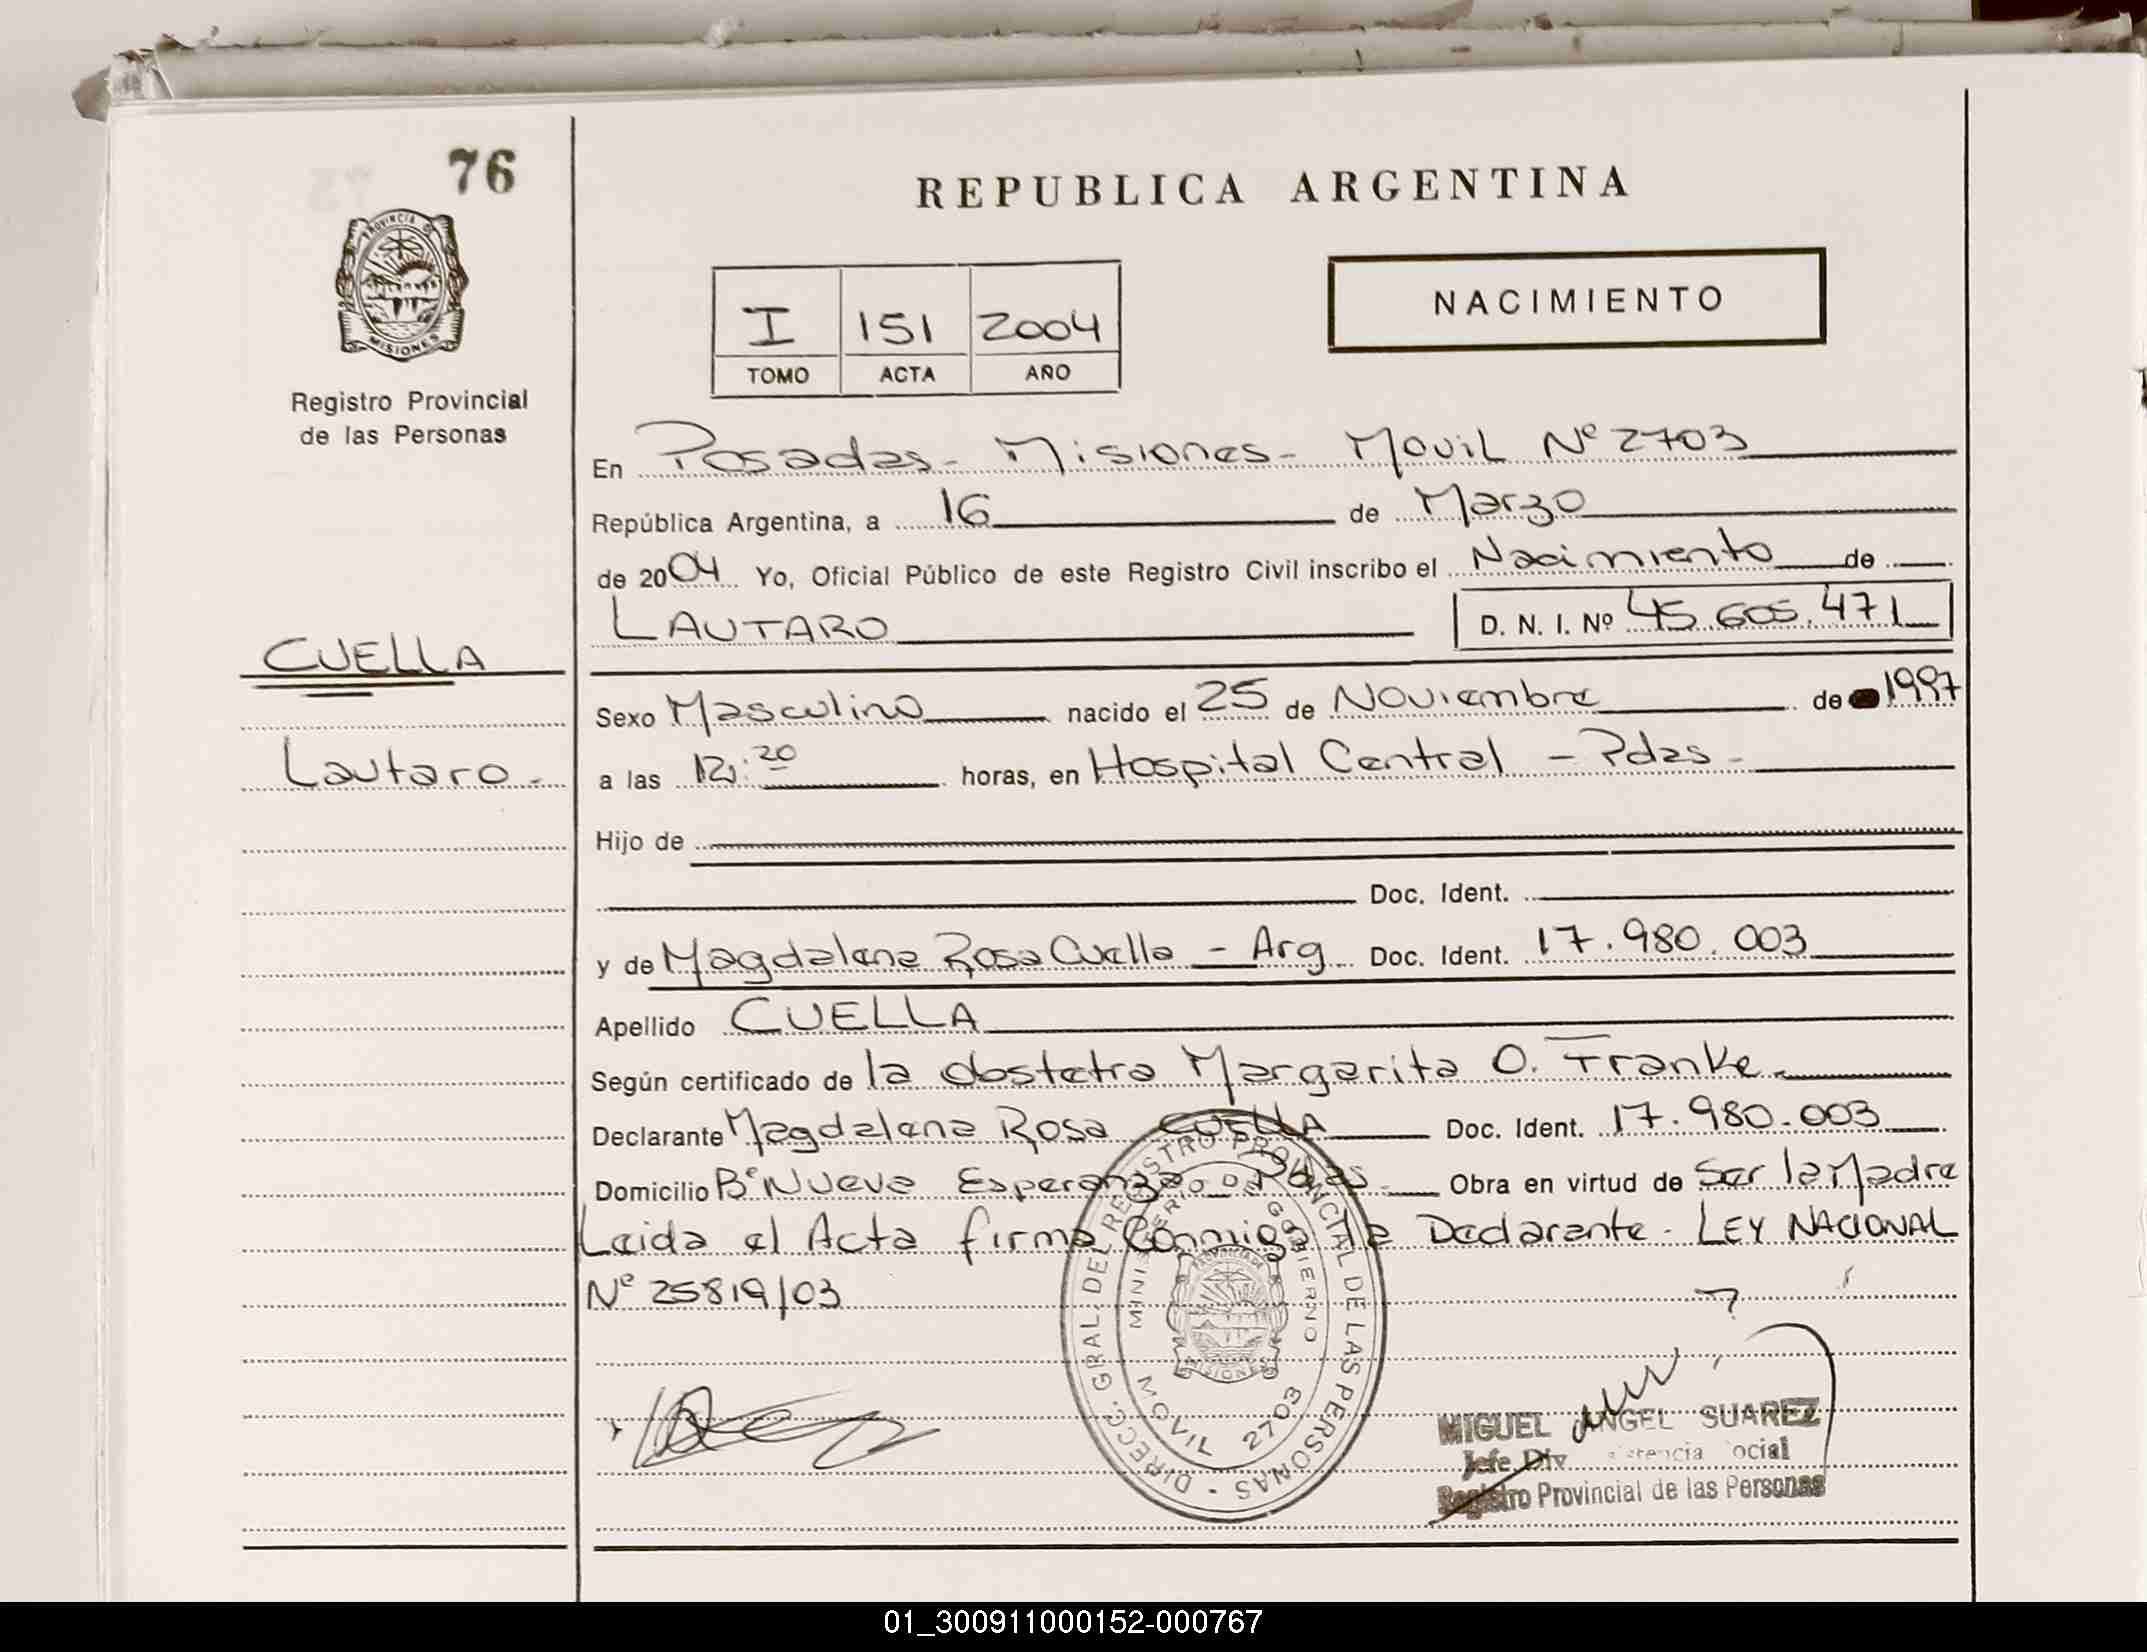 76
PROVINCIA D
MISIONES
Registro Provincial
de las Personas
CUELLA
Lautaro.-
REPUBLICA ARGENTINA
NACIMIENTO
I 151 2004
TOMO ACTA AÑO
En Posadas- Misiones- Movil Nº 2703
República Argentina, a 16 de Marzo
de 2004 Yo, Oficial Público de este Registro Civil inscribo el Nacimiento de
LAUTARO D. N. I. Nº 45.605.471
Sexo Masculino nacido el 25 de Noviembre de 1997
a las 12:20 horas, en Hospital Central - Pdas-
Hijo de
Doc. Ident.
y de Magdalena Rosa Cuella - Arg Doc. Ident. 17.980.003
Apellido CUELLA
Según certificado de la obstetra Margarita O. Franke.
Declarante Magdalena Rosa CUELLA Doc. Ident. 17.980.003
Domicilio Bº Nueva Esperanza - Pdas- Obra en virtud de Ser la Madre
Leida el Acta firma Conmigo la Declarante - LEY NACIONAL
Nº 25819/03
DIRECC. GRAL. DEL REGISTRO PROVINCIAL DE LAS PERSONAS
MINISTERIO DE GOBIERNO
MISIONES
MOVIL 2703
MIGUEL ANGEL SUAREZ
Jefe Div ocial
Registro Provincial de las Personas
01_300911000152-000767